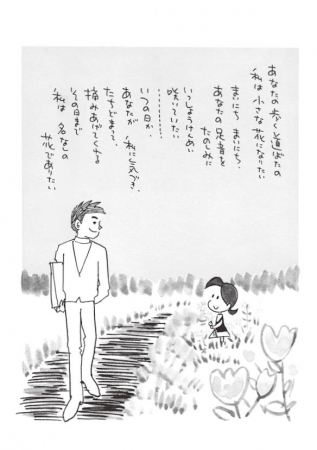 あなたの歩く道ばたの
私は 小さな 花になりたい
まいにち まいにち、
あなたの 足音を
たのしみに
いっしょうけんめい
咲いていたい
…………
いつの日か、
あなたが 私に気づき、
たちどまって、
摘みあげてくれる
その日まで
私は 名なしの
花でありたい